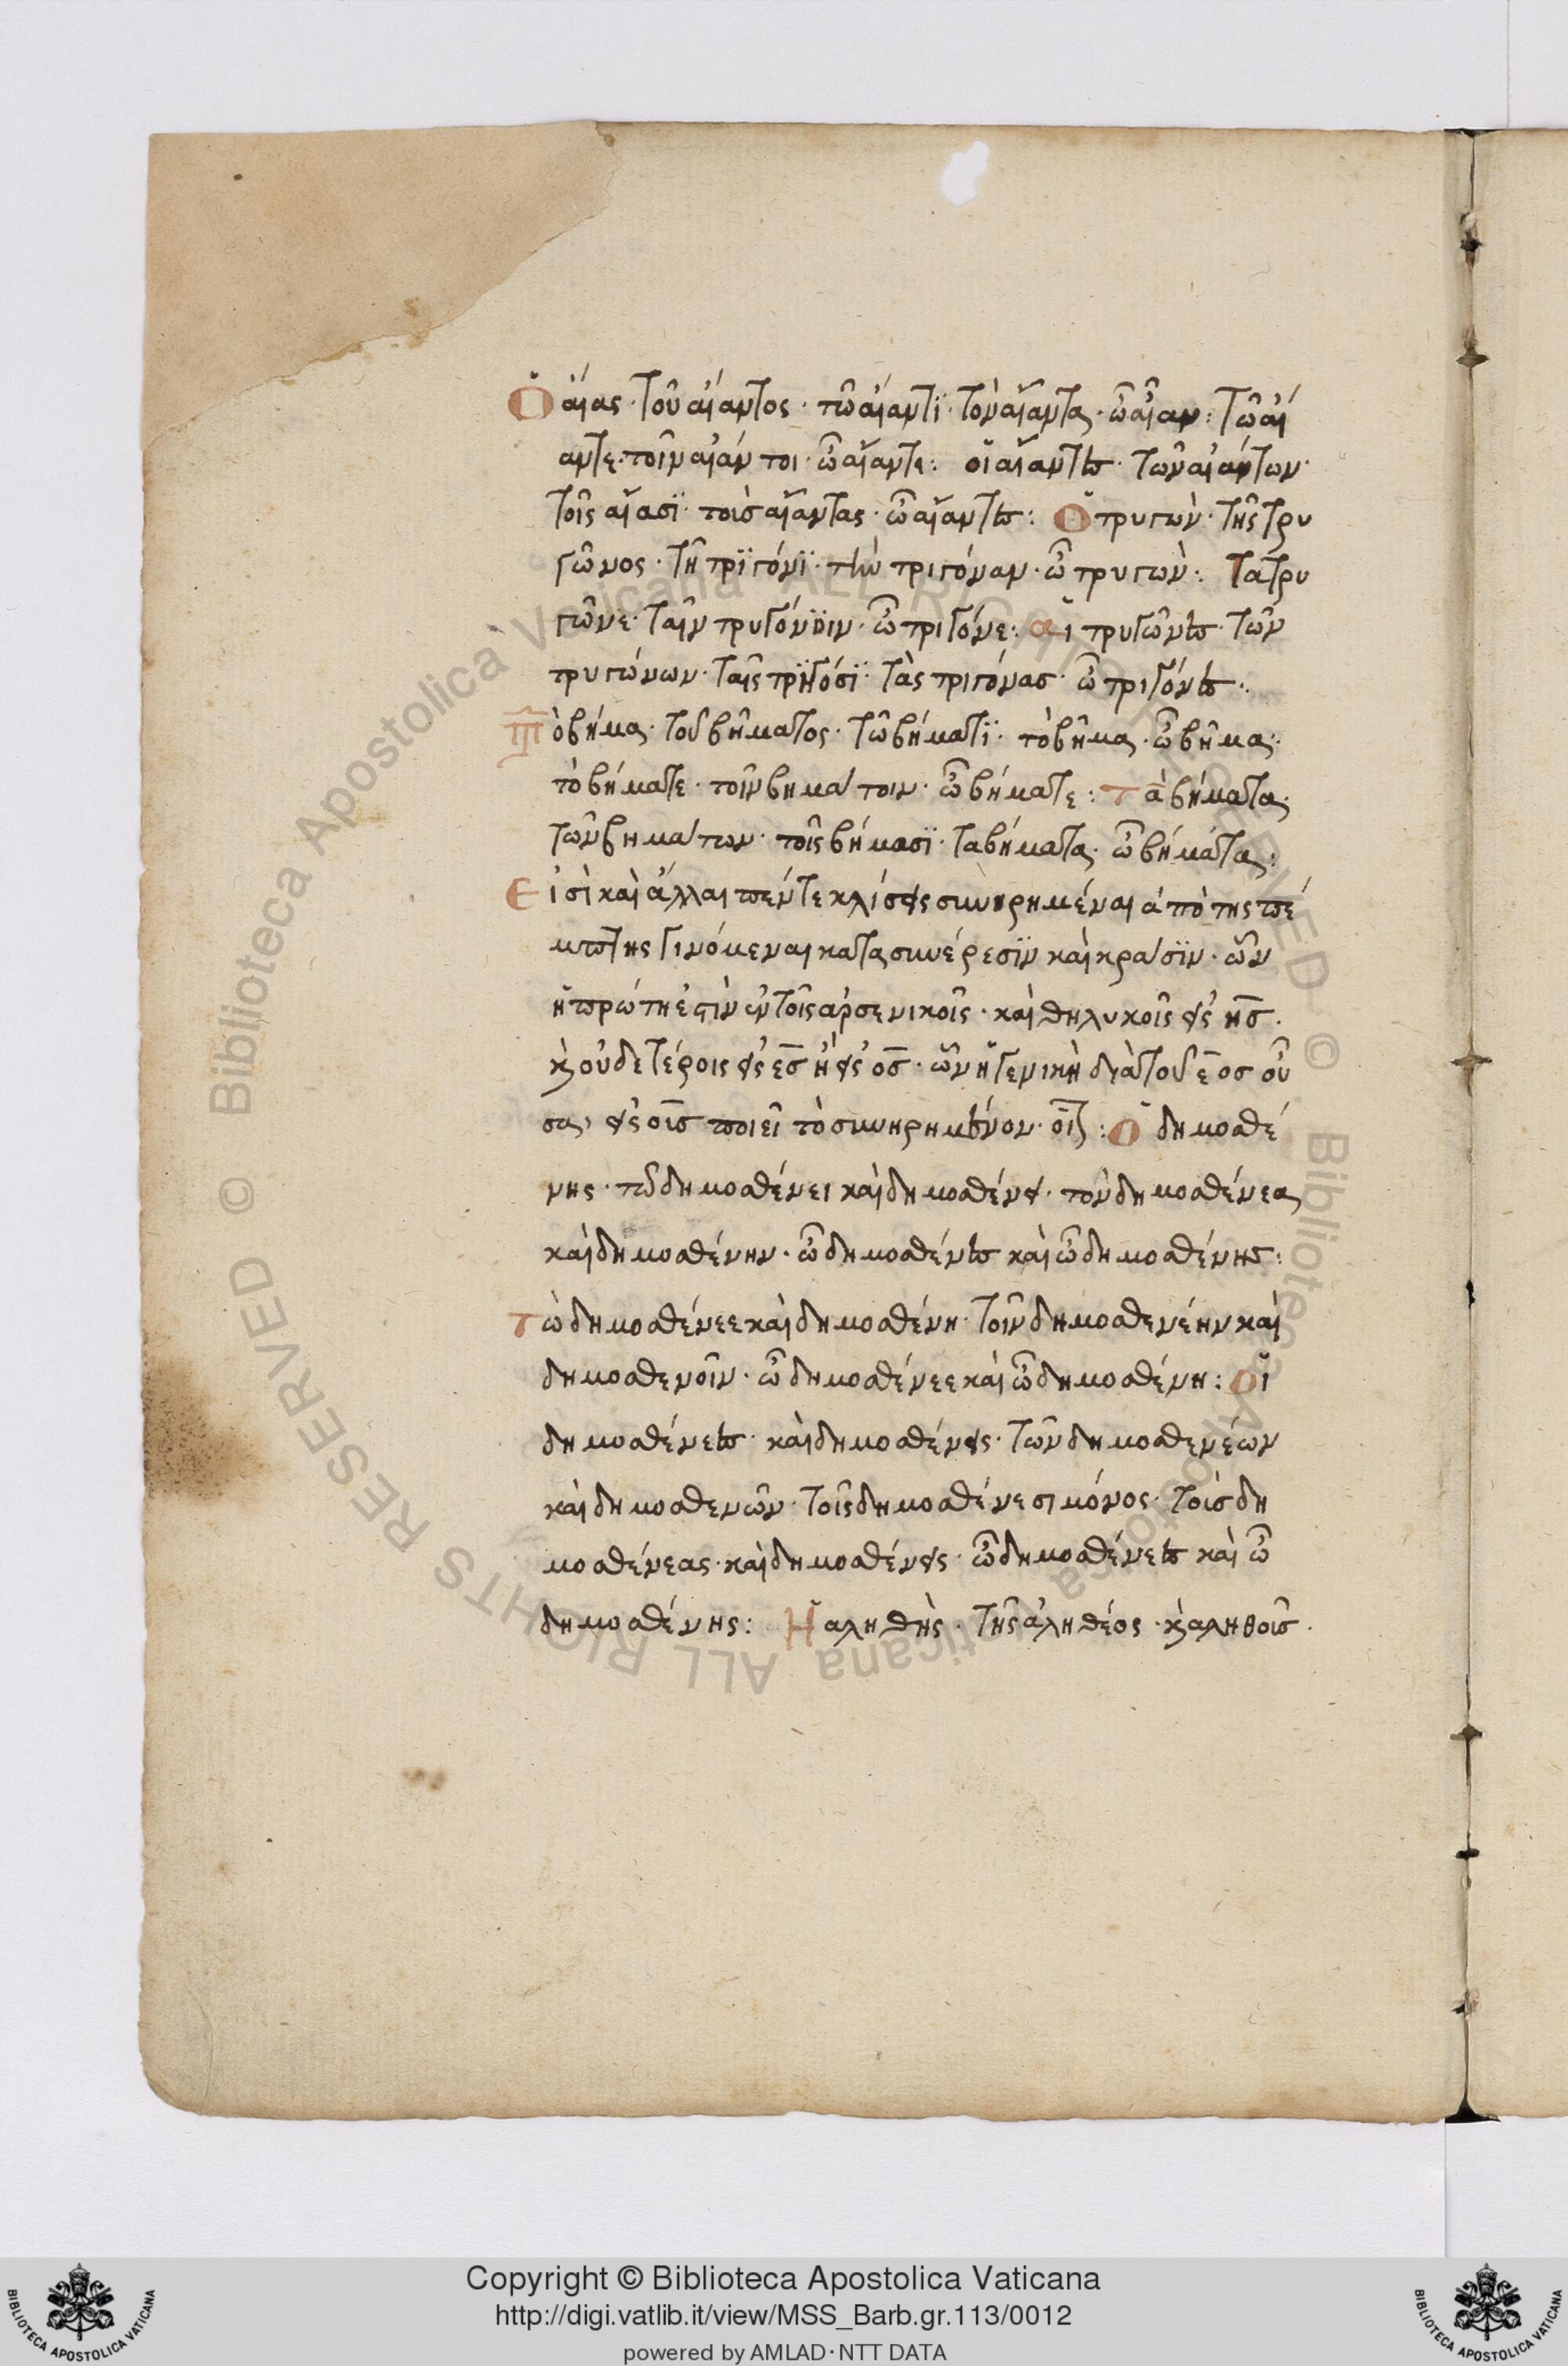 Ὁ αἴας· τοῦ αἴαντος· τῶ αἴαντϊ· τὸν αἴαντα· ὦ αἶαν: τῶ αἴ
αντε· τοῖν αἰάν τοι· ὦ αἴαντε: οἱ αἴαντες· τῶν αἰάντων·
τοῖς αἴασϊ· τοὶσ αἴαντας· ὦ αἴαντες: Ὁ τρυγὼν· τῆς τρυ
γῶνος· τῆ τρϊγόνϊ· τὴν τριγόναν· ὦ τρυγὼν: Τὰ τρυ
γῶνε· ταῖν τρυγόνοιν· ὦ τριγόνε: αἱ τρυγῶνες· τῶν
τρυγώνων· ταῖς τρϊγόσϊ· τὰς τριγόνασ· ὦ τριγόνες:
Τὸ βήμα· τοῦ βήματος· τῶ βήματϊ· τὸ βῆμα· ὦ βῆμα:
τὸ βήματε· τοῖν βημάτοιν· ὦ βήματε: τὰ βήματα·
τῶν βημάτων· τοῖς βήμασϊ· τὰ βήματα· ὦ βήματα:
Εἰσὶ καὶ ἄλλαι πέντε κλίσεις συνηρημέναι ἀπὸ της πέ
μπτης γινόμεναι κατα συνέρεσϊν καὶ κράσϊν· ὧν
ἡ πρώτη ἐστὶν ἐν τοῖς ἀρσενικοῖς· καὶ θηλυκοῖς εἰς ησ·
κὶ οὐδετέροις εἰς εσ ἢ εἰς οσ· ὧν ἡ γενικὴ διὰ τοῦ εοσ οὖ
σα, εἰς οισ ποιεῖ τὸ συνηρημένον· οἷ: Ὁ δημοσθέ
νης· τῶ δημοσθένει καὶ δημοσθένει· τὸν δημοσθένεα
καὶ δημοσθένην· ὦ δημοσθένες καὶ ὦ δημοσθένησ:
Τὼ δημοσθένεε καὶ δημοσθένη· τοῖν δημοσθενέην καὶ
δημοσθενοῖν· ὦ δημοσθένεε καὶ ὦ δημοσθένη: Οἱ
δημοσθένεες· καὶ δημοσθένεις· τῶν δημοσθενέων
καὶ δημοσθενῶν· τοῖς δημοσθένεσι μόνος· τοὶσ δη
μοσθένεας· καὶ δημοσθένεις· ὦ δημοσθένεες καὶ ὦ
δημοσθένης: Ἡ αληθὴς· τῆς ἀληθέος· κὶ αληθοῖσ·
Copyright © Biblioteca Apostolica Vaticana
http://digi.vatlib.it/view/MSS_Barb.gr.113/0012
powered by AMLAD·NTT DATA
BIBLIOTECA APOSTOLICA VATICANA
BIBLIOTECA APOSTOLICA VATICANA
© Biblioteca Apostolica Vaticana ALL RIGHTS RESERVED © Biblioteca Apostolica Vaticana ALL RIGHTS RESERVED